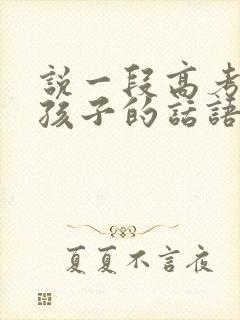 説一段高考
孩子的話語
夏夏不言夜